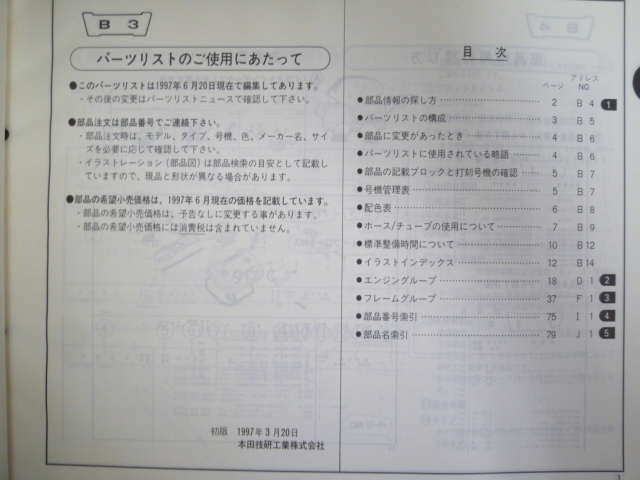 B 3
パーツリストのご使用にあたって
●このパーツリストは1997年6月20日現在で編集してあります。
・その後の変更はパーツリストニュースで確認して下さい。
●部品注文は部品番号でご連絡下さい。
・部品注文時は、モデル、タイプ、号機、色、メーカー名、サイ
ズを必要に応じて確認して下さい。
・イラストレーション（部品図）は部品検索の目安として記載し
ていますので、現品と形状が異なる場合があります。
●部品の希望小売価格は、1997年6月現在の価格を記載しています。
・部品の希望小売価格は、予告なしに変更する事があります。
・部品の希望小売価格には消費税は含まれていません。
初版 1997年3月20日
本田技研工業株式会社
目 次
ページ アドレスNO.
●部品情報の探し方 2 B 4 1
●パーツリストの構成 3 B 5
●部品に変更があったとき 4 B 6
●パーツリストに使用されている略語 4 B 6
●部品の記載ブロックと打刻号機の確認 5 B 7
●号機管理表 5 B 7
●配色表 6 B 8
●ホース/チューブの使用について 7 B 9
●標準整備時間について 10 B 12
●イラストインデックス 12 B 14
●エンジングループ 18 D 1 2
●フレームグループ 37 F 1 3
●部品番号索引 75 I 1 4
●部品名索引 79 J 1 5